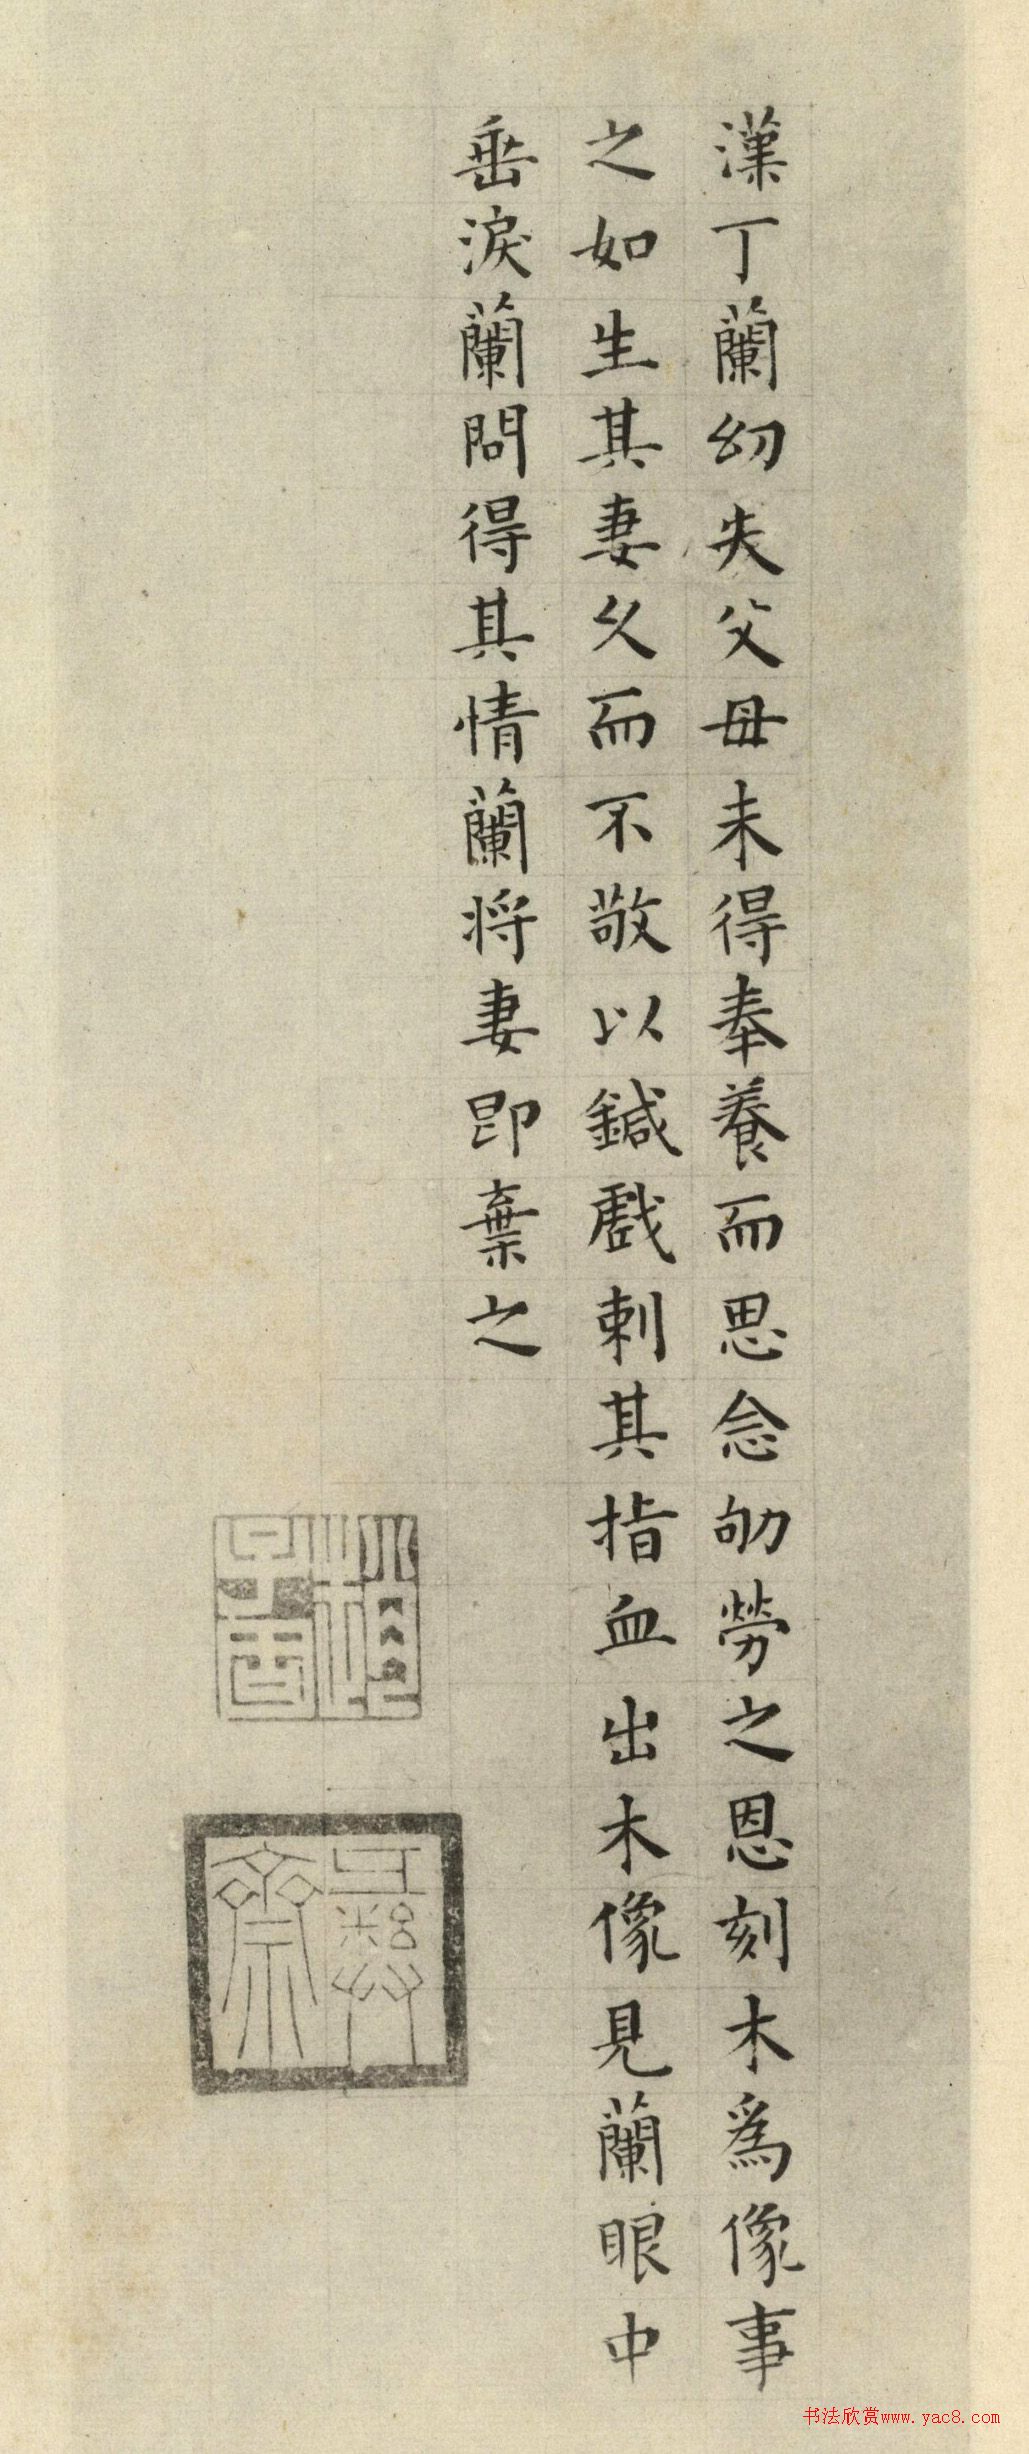 漢丁蘭幼失父母未得奉養而思念劬勞之恩刻木為像事
之如生其妻久而不敬以鍼戲刺其指血出木像見蘭眼中
垂淚蘭問得其情蘭將妻即棄之
书法欣赏www.yac8.com